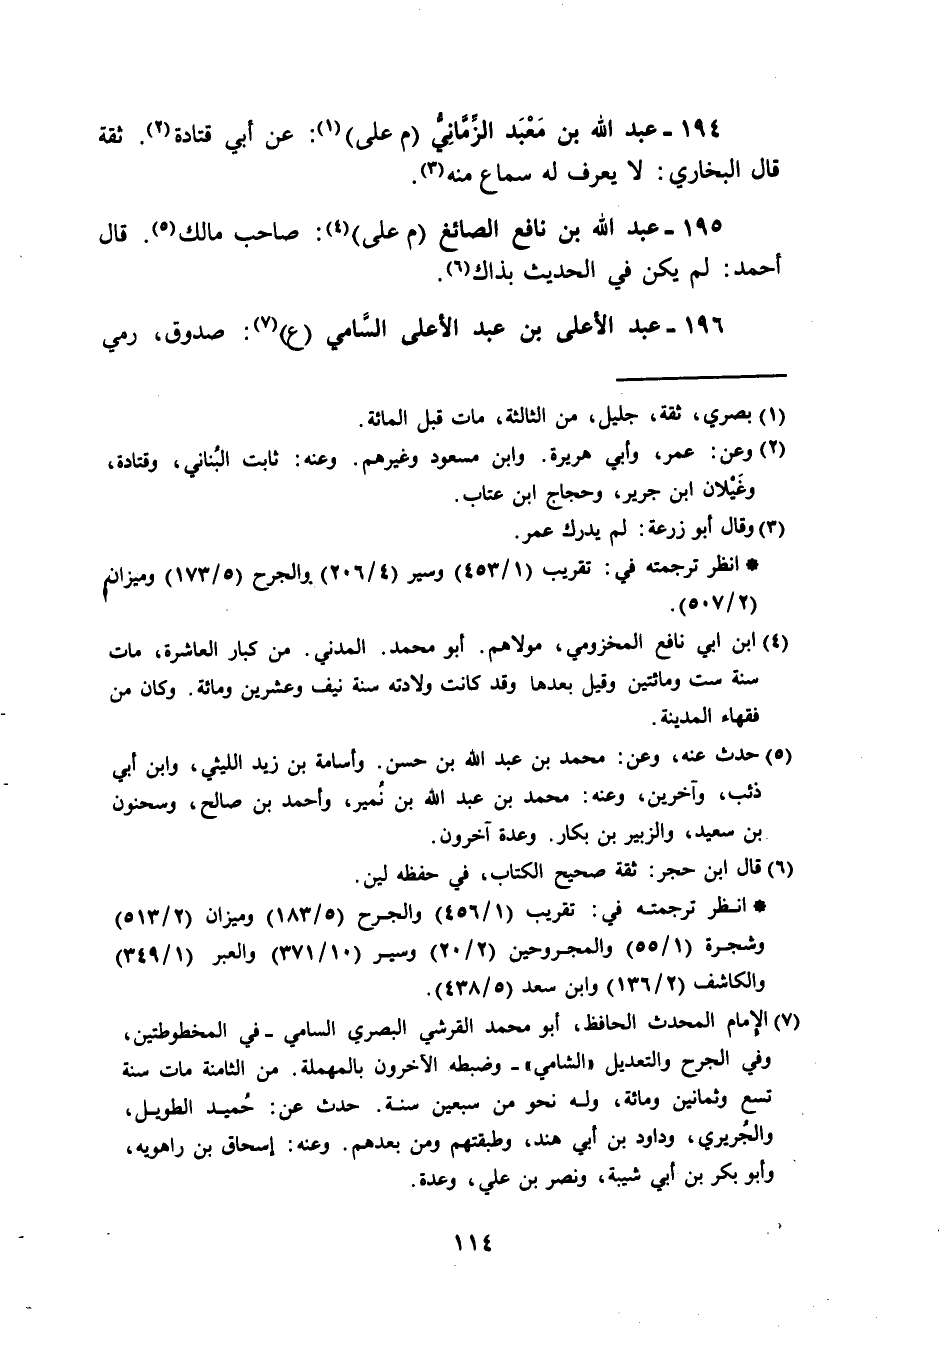 ١٩٤ - عبد الله بن مَعْبَد الزَّمَّانِيُّ (م على)(١): عن أبي قتادة(٢). ثقة
قال البخاري: لا يعرف له سماع منه(٣).
١٩٥ - عبد الله بن نافع الصائغ (م على)(٤): صاحب مالك(٥). قال
أحمد: لم يكن في الحديث بذاك(٦).
١٩٦ - عبد الأعلى بن عبد الأعلى السَّامي (ع)(٧): صدوق، رمي
(١) بصري، ثقة، جليل، من الثالثة، مات قبل المائة.
(٢) وعن: عمر، وأبي هريرة. وابن مسعود وغيرهم. وعنه: ثابت البُناني، وقتادة،
وغَيْلان ابن جرير، وحجاج ابن عتاب.
(٣) وقال أبو زرعة: لم يدرك عمر.
* انظر ترجمته في: تقريب (١/٤٥٣) وسير (٤/٢٠٦) والجرح (٥/١٧٣) وميزان
(٢/٥٠٧).
(٤) ابن ابي نافع المخزومي، مولاهم. أبو محمد. المدني. من كبار العاشرة، مات
سنة ست ومائتين وقيل بعدها وقد كانت ولادته سنة نيف وعشرين ومائة. وكان من
فقهاء المدينة.
(٥) حدث عنه، وعن: محمد بن عبد الله بن حسن. وأسامة بن زيد الليثي، وابن أبي
ذئب، وآخرين، وعنه: محمد بن عبد الله بن نُمير، وأحمد بن صالح، وسحنون
بن سعيد، والزبير بن بكار. وعدة آخرون.
(٦) قال ابن حجر: ثقة صحيح الكتاب، في حفظه لين.
* انظر ترجمته في: تقريب (١/٤٥٦) والجرح (٥/١٨٣) وميزان (٢/٥١٣)
وشجرة (١/٥٥) والمجروحين (٢/٢٠) وسير (١٠/٣٧١) والعبر (١/٣٤٩)
والكاشف (٢/١٣٦) وابن سعد (٥/٤٣٨).
(٧) الإمام المحدث الحافظ، أبو محمد القرشي البصري السامي - في المخطوطتين،
وفي الجرح والتعديل «الشامي» - وضبطه الآخرون بالمهملة. من الثامنة مات سنة
تسع وثمانين ومائة، وله نحو من سبعين سنة. حدث عن: حُميد الطويل،
والجُريري، وداود بن أبي هند، وطبقتهم ومن بعدهم. وعنه: إسحاق بن راهويه،
وأبو بكر بن أبي شيبة، ونصر بن علي، وعدة.
١١٤